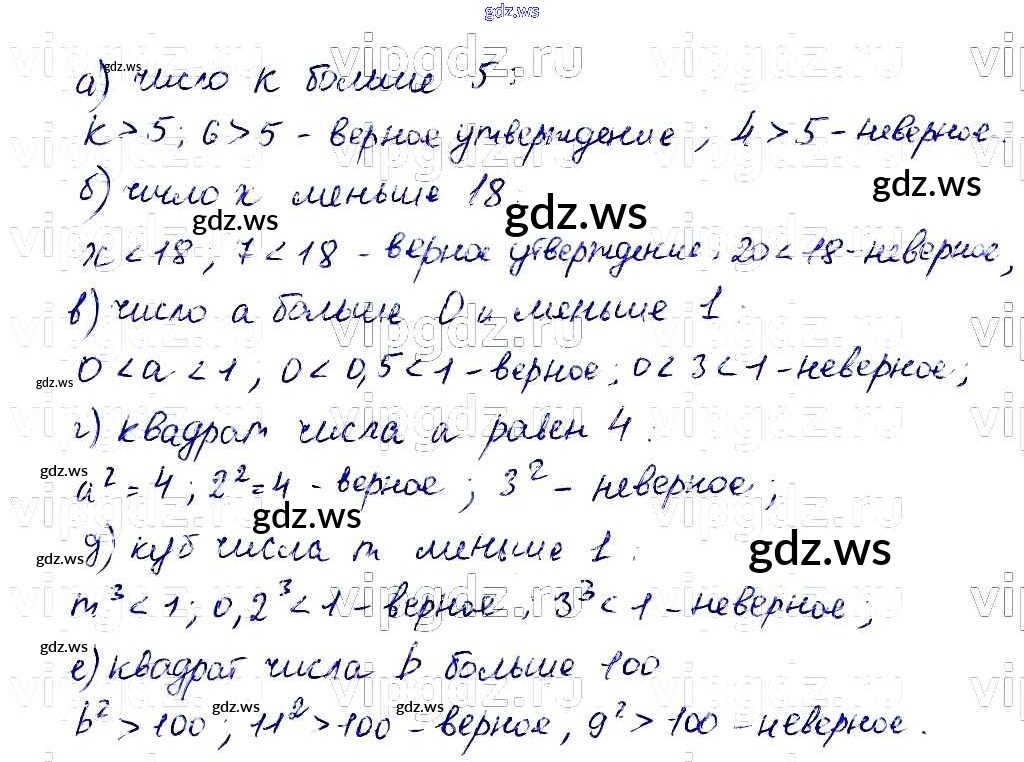 gdz.ws
vipgdz.ru vipgdz.ru vipgdz.ru vip
gdz.ws
а) число k больше 5;
k > 5; 6 > 5 - верное утверждение; 4 > 5 - неверное.
б) число x меньше 18;
gdz.ws gdz.ws gdz.ws
x < 18; 7 < 18 - верное утверждение; 20 < 18 - неверное,
в) число a больше 0 и меньше 1.
gdz.ws
0 < a < 1; 0 < 0,5 < 1 - верное; 0 < 3 < 1 - неверное;
г) квадрат числа a равен 4.
gdz.ws
a² = 4; 2² = 4 - верное; 3² - неверное;
gdz.ws gdz.ws
д) куб числа m меньше 1:
gdz.ws
m³ < 1; 0,2³ < 1 - верное; 3³ < 1 - неверное;
gdz.ws
е) квадрат числа b больше 100
gdz.ws gdz.ws
b² > 100; 11² > 100 - верное, 9² > 100 - неверное.